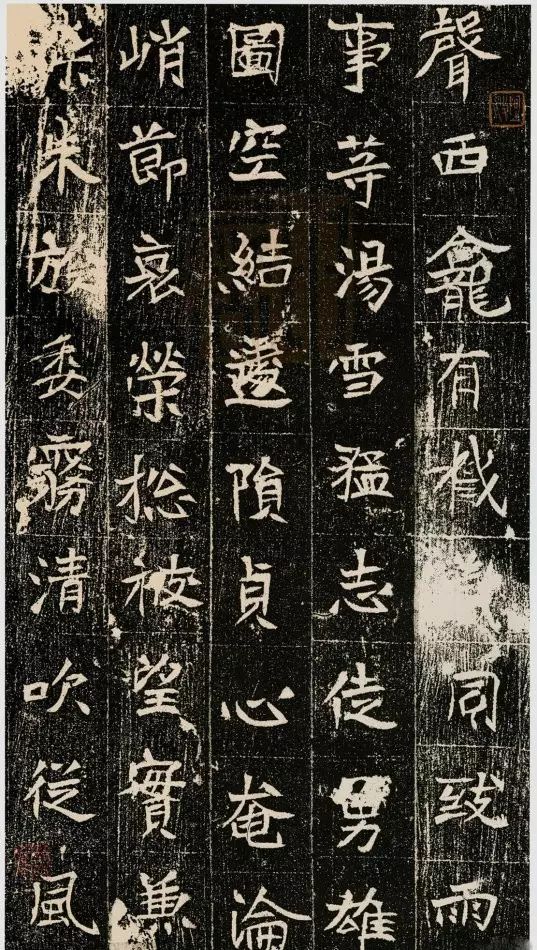 聲西龕有截同跂雨
事等湯雪猛志徒男雄
圖空結遽隕貞心奄淪
峭節哀榮揔被望實兼
朱旂委霧清吹從風